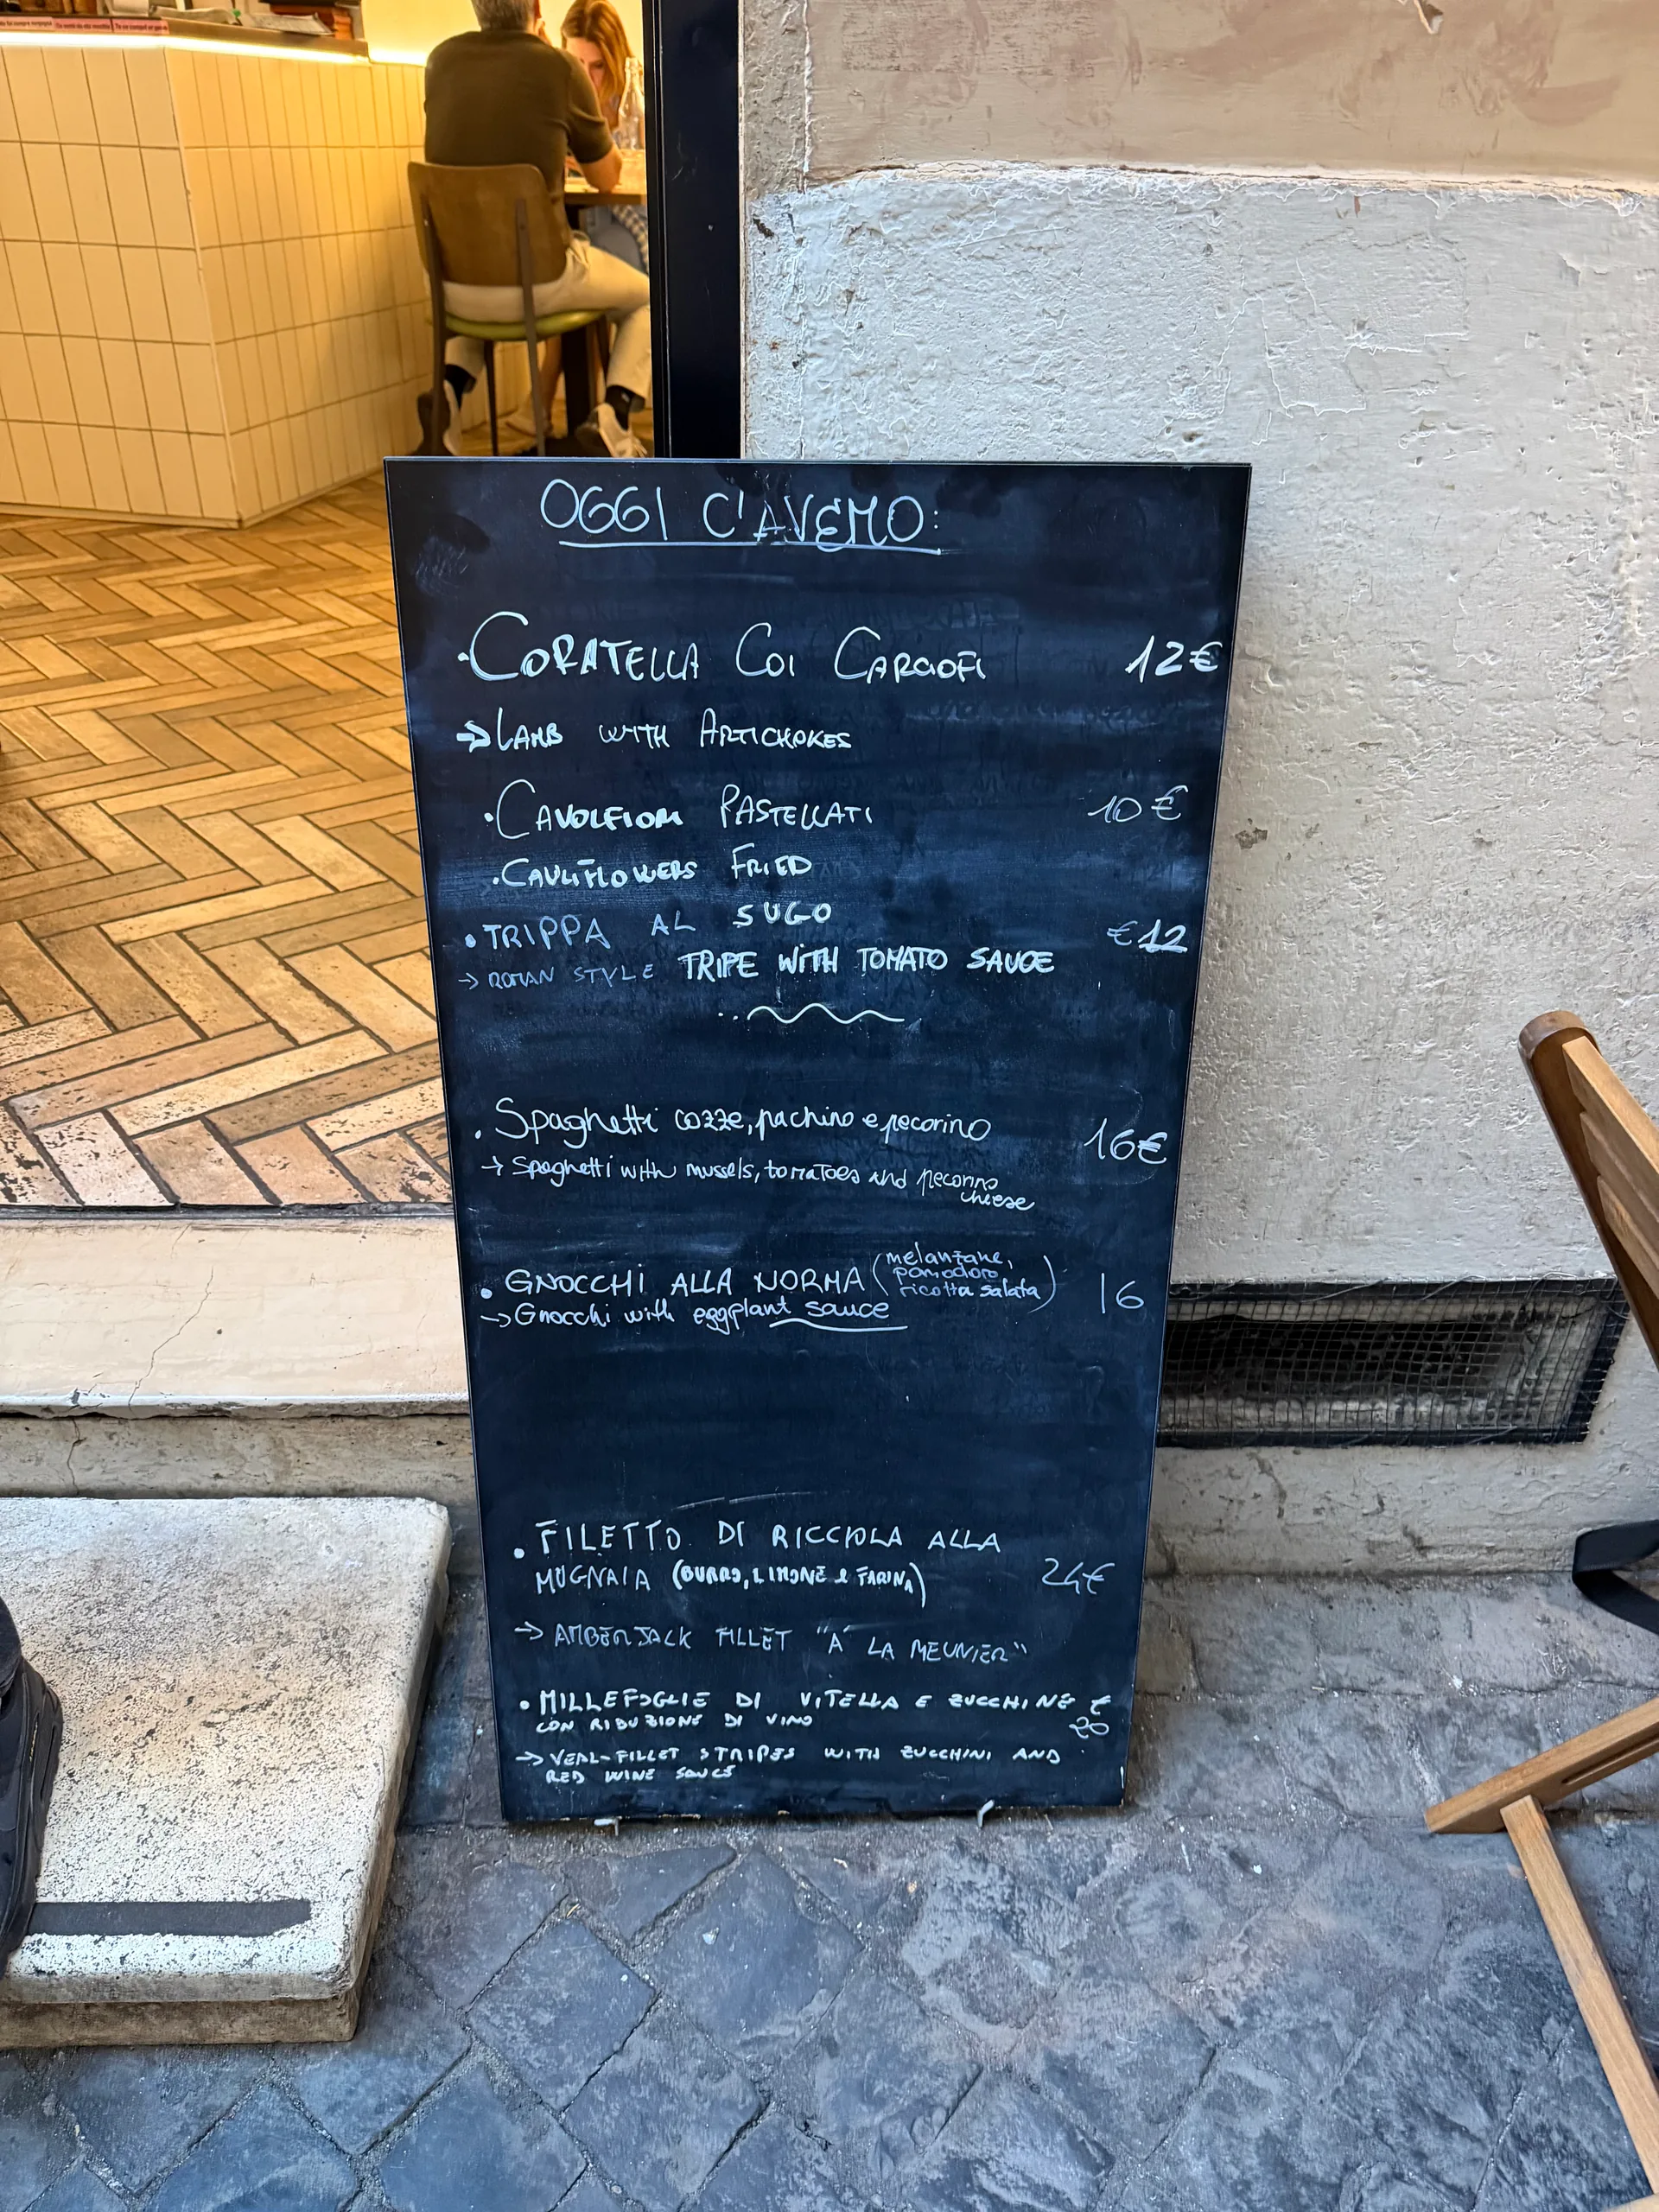 OGGI C'AVEMO:
·CORATELLA COI CARCIOFI 12€
→LAMB WITH ARTICHOKES
·CAVOLFIORI PASTELLATI 10€
·CAULIFLOWERS FRIED
·TRIPPA AL SUGO €12
→ ROMAN STYLE TRIPE WITH TOMATO SAUCE
· Spaghetti cozze, pachino e pecorino 16€
→ Spaghetti with mussels, tomatoes and pecorino
cheese
· GNOCCHI ALLA NORMA (melanzane, pomodoro ricotta salata) 16
→ Gnocchi with eggplant sauce
· FILETTO DI RICCIOLA ALLA
MUGNAIA (BURRO, LIMONE e FARINA) 24€
→ AMBERJACK FILLET "A' LA MEUNIER"
· MILLEFOGLIE DI VITELLA E ZUCCHINE €
CON RIDUZIONE DI VINO 20
→ VEAL-FILLET STRIPES WITH ZUCCHINI AND
RED WINE SAUCE